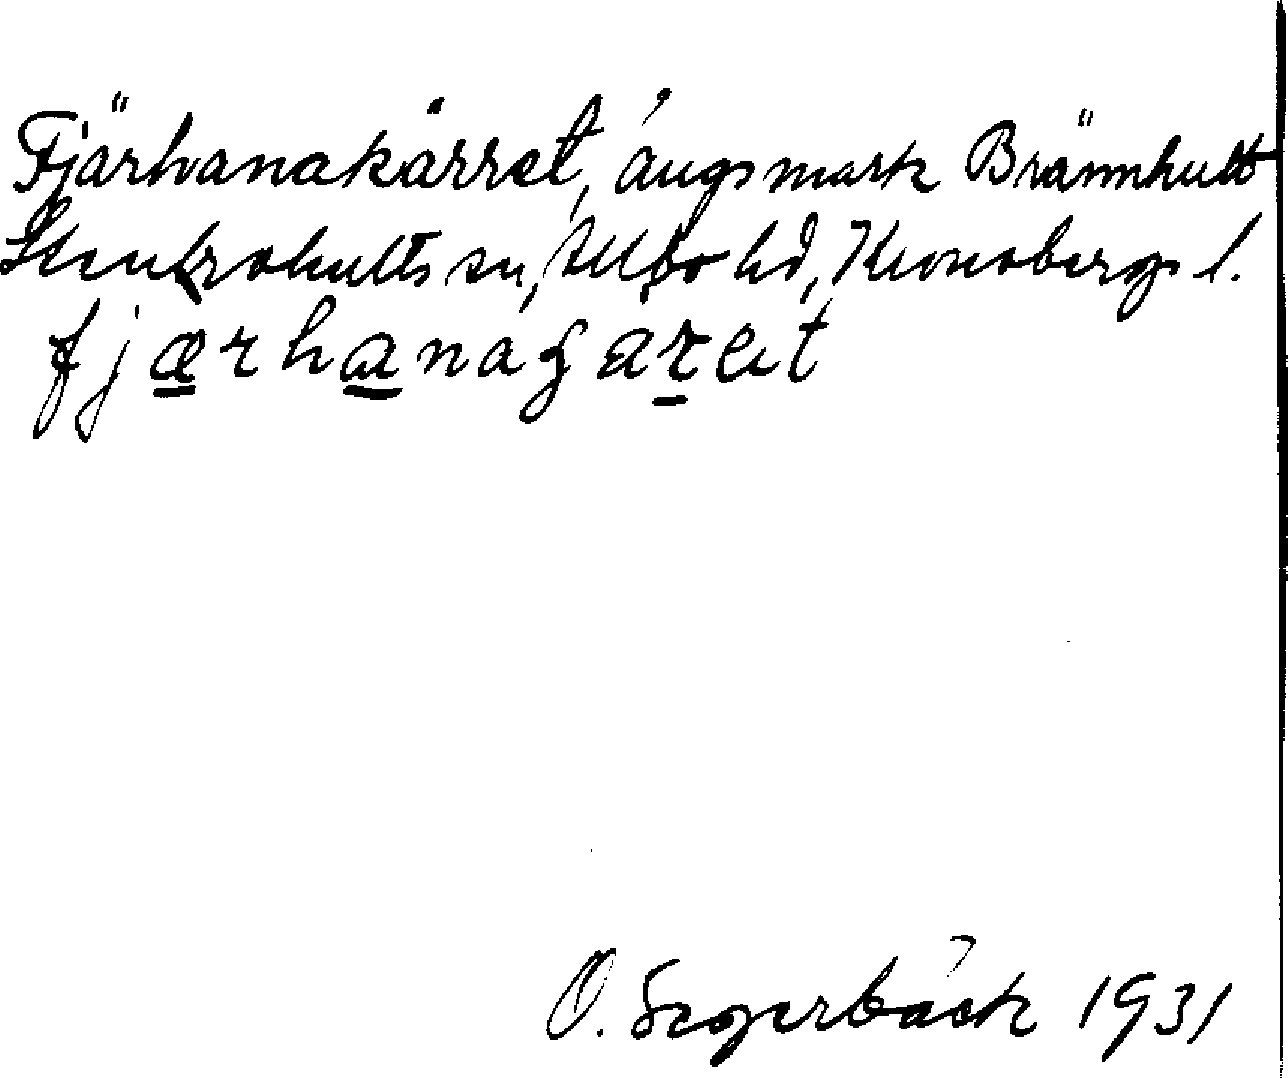 Fjärhanakärret, ängsmark Brännhult
Stenbrohults sn, Allbo hd, Kronobergs l.
fjærhanaɕaret
O. Segerbäck 1931